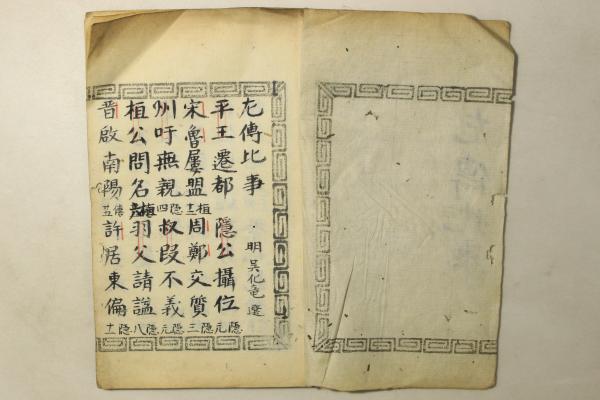 左傳比事 · 明吳化龍選
平王遷都 隱公攝位 隱元
宋魯屢盟 桓十二 周鄭交質 隱三
州吁無親 隱四 叔段不義 隱元
桓公問名 桓六 羽父請諡 隱八
晉啟南陽 僖廿五 許居東偏 隱十一